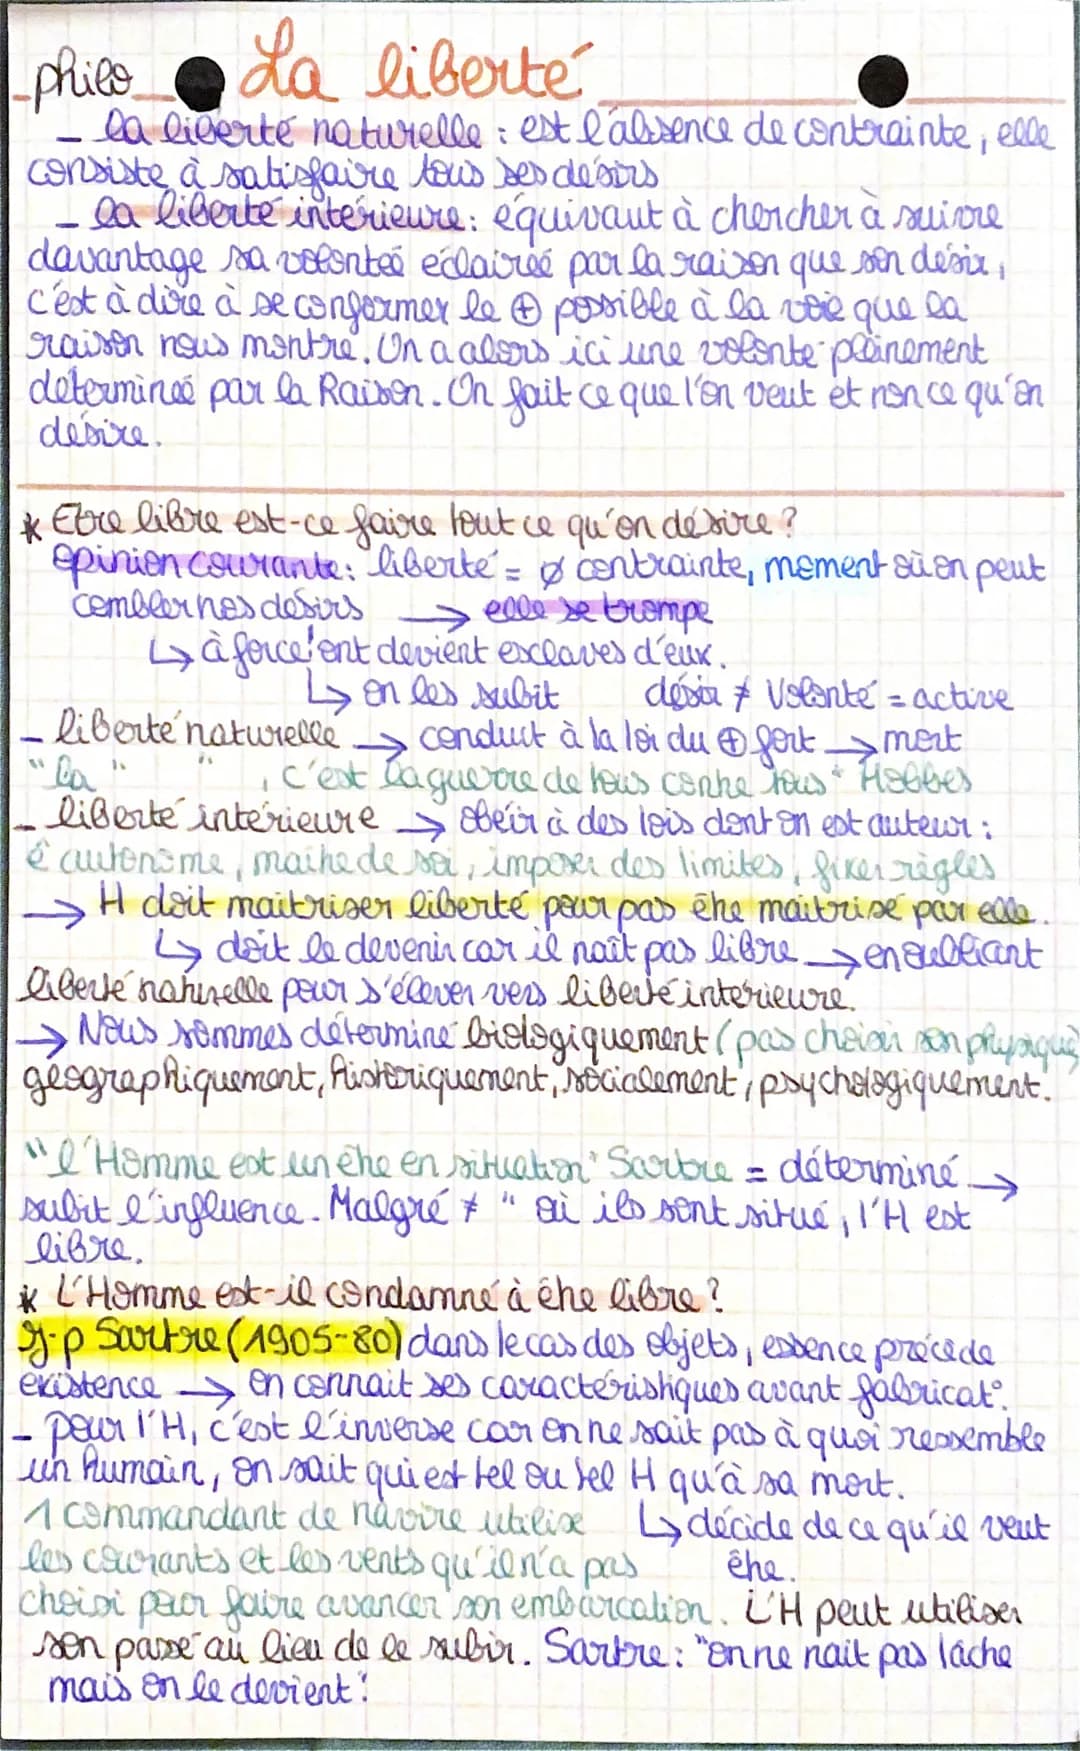 philo La liberté
- la liberté naturelle : est l'absence de contrainte, elle
consiste à satisfaire tous ses désirs
- la liberté intérieure : équivaut à chercher à suivre
davantage sa volonteé eclaireé par la raison que son désir,
c'est à dire à se conformer le ⊕ possible à la voie que la
raison nous montre. On a alors ici une volonté pleinement
determineé par la Raison. On fait ce que l'on veut et non ce qu'on
désire.
* Etre libre est-ce faire tout ce qu'on désire ?
opinion courante : liberté = ø contrainte, moment où on peut
combler nos desirs → elle se trompe
↳ à force ont devient esclaves d'eux.
↳ on les subit désir ≠ Volonté = active
- liberté naturelle → conduit à la loi du ⊕ fort → mort
"la " " , c'est la guerre de tous contre tous" Hobbes
- liberté intérieure → obéir à des lois dont on est auteur :
ê autonome, maitre de soi, imposer des limites, fixer règles
→ H doit maitriser liberté pour pas être maitrisé par elle.
↳ doit le devenir car il naît pas libre → en oubliant
liberté naturelle pour s'élever vers liberté intérieure.
→ Nous sommes déterminé biologiquement (pas choisi son physique)
géographiquement, historiquement, socialement, psychologiquement.
"l'Homme est un être en situation" Sartre = déterminé →
subit l'influence. Malgré ≠ " où ils sont situé, l'H est
libre.
* L'Homme est-il condamné à être libre ?
J-p Sartre (1905-80) dans le cas des objets, essence précède
existence → on connait ses caractéristiques avant fabricat°.
- pour l'H, c'est l'inverse car on ne sait pas à quoi ressemble
un humain, on sait qui est tel ou tel H qu'à sa mort.
1 commandant de navire utilise ↳ décide de ce qu'il veut
les courants et les vents qu'il n'a pas être.
choisi pour faire avancer son embarcation. L'H peut utiliser
son passé au lieu de le subir. Sartre : "on ne nait pas lâche
mais on le devient"